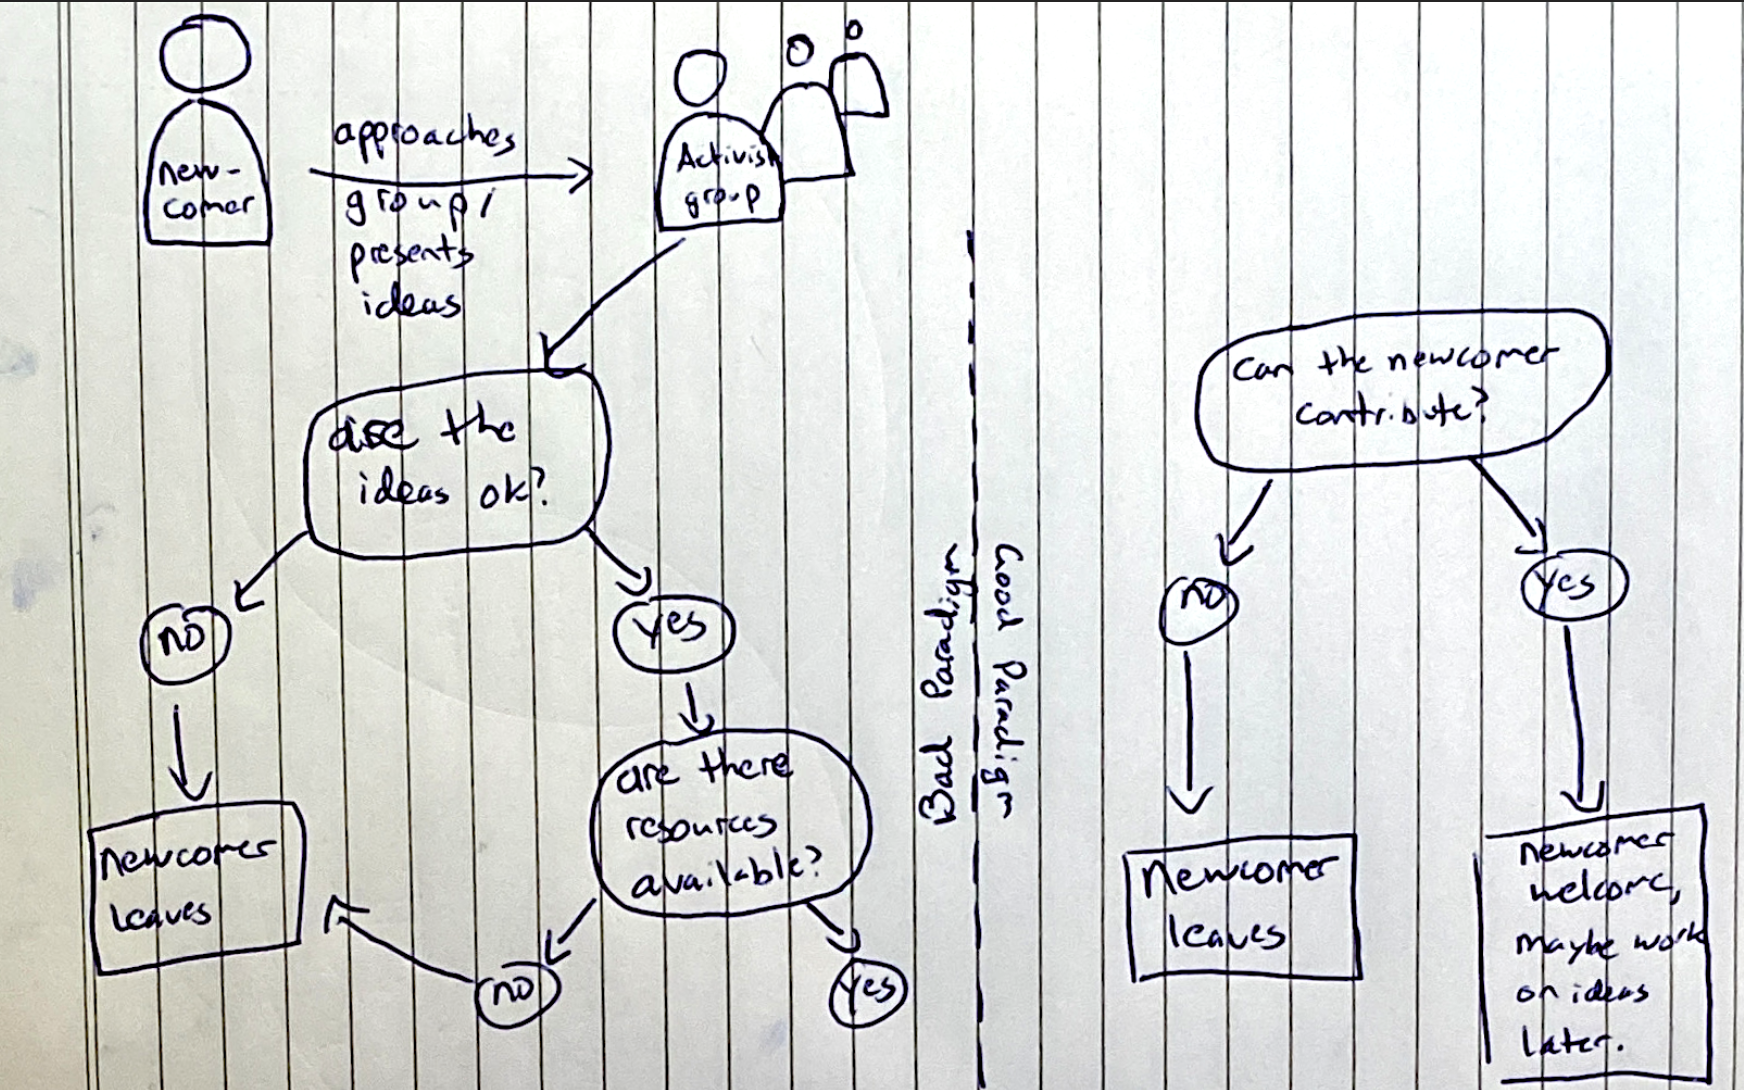 new-
comer
approaches
group/
presents
ideas
Activist
group
are the
ideas ok?
no
yes
newcomer
leaves
are there
resources
available?
no
yes
Bad Paradigm
Good Paradigm
Can the newcomer
contribute?
no
yes
Newcomer
leaves
newcomer
welcome,
maybe work
on ideas
later.